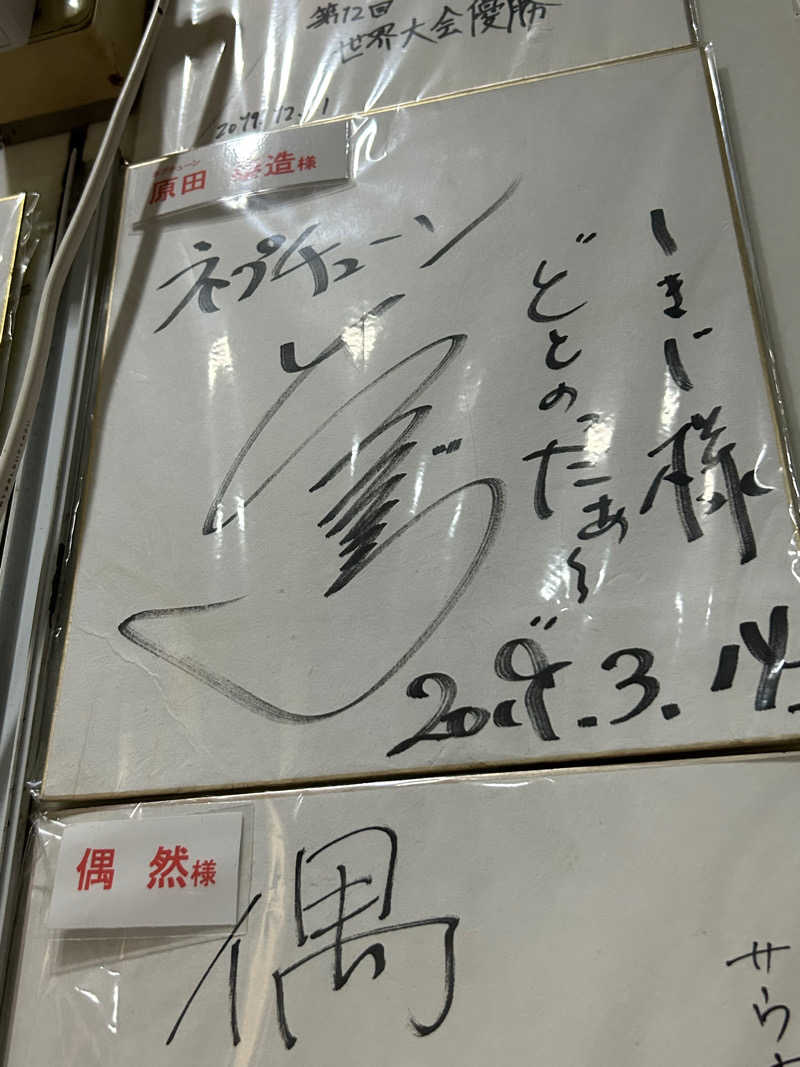 第12回
世界大会優勝
2019.12.1
ネプチューン
原田 泰造様
ネプチューン
しきじ様
ととのったあ〜
2019.3.14.
偶 然様
偶
サウ